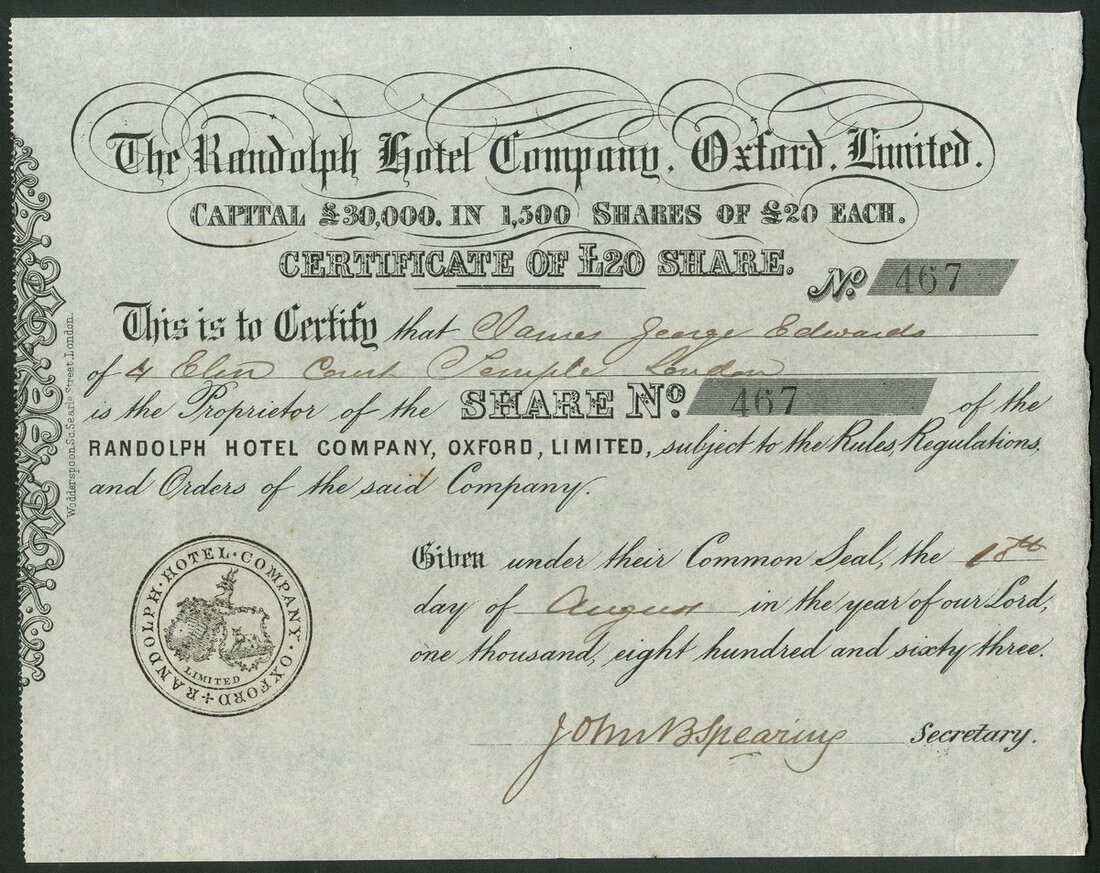 The Randolph Hotel Company, Oxford, Limited.
CAPITAL £30,000. IN 1,500 SHARES OF £20 EACH.
CERTIFICATE OF £20 SHARE.
No. 467
This is to Certify that James George Edwards
of 4 Elm Court Temple London
is the Proprietor of the SHARE No. 467 of the
RANDOLPH HOTEL COMPANY, OXFORD, LIMITED, subject to the Rules, Regulations,
and Orders of the said Company.
Given under their Common Seal, the 18th
day of August in the year of our Lord,
one thousand, eight hundred and sixty three.
John B Spearing Secretary.
RANDOLPH · HOTEL · COMPANY · OXFORD
LIMITED
Wodderspoon. Sc. Searle Street. London.